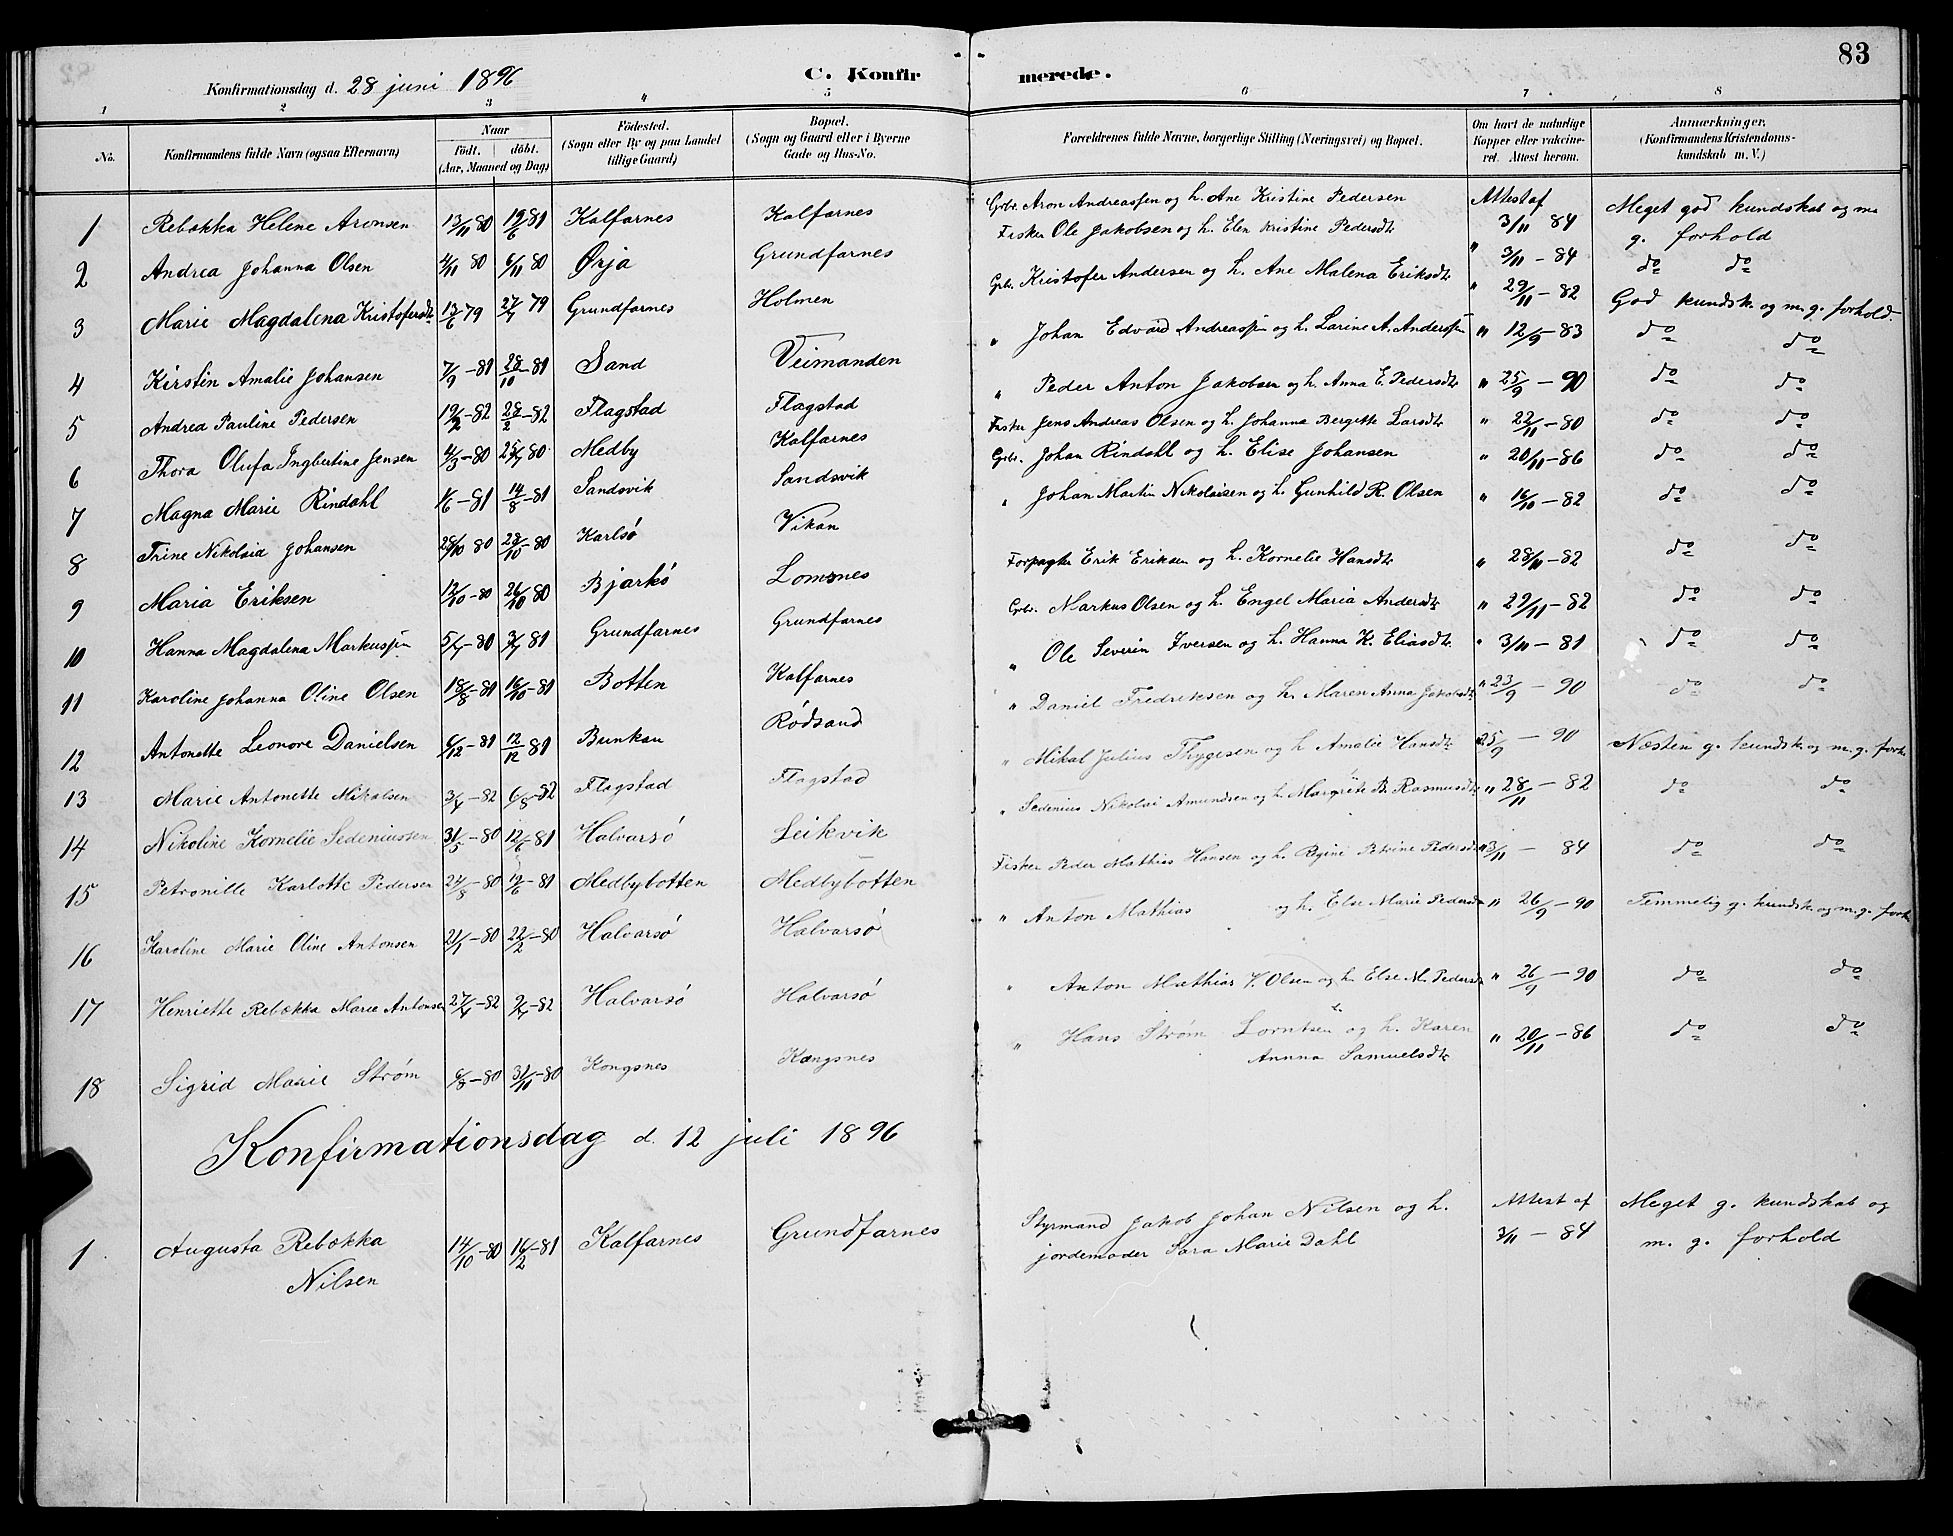 83
Konfirmationsdag d. 28 juni 1896
C. Konfirmerede.
1 2 3 4 5 6 7 8
No. Konfirmandens fulde Navn (ogsaa Efternavn) Naar födt. döbt. (Aar, Maaned og Dag) Födested. (Sogn eller By og paa Landet tillige Gaard) Bopæl. (Sogn og Gaard eller i Byerne Gade og Hus-No. Forældrenes fulde Navne, borgerlige Stilling (Næringsvei) og Bopæl. Om havt de naturlige Kopper eller vaksineret. Attest herom. Anmærkninger. (Konfirmandens Kristendomskundskab m. V.)
1 Rebekka Helene Aronsen 13/11 80 19/6 81 Kalfarnes Kalfarnes Grbr. Aron Andreassen og h. Ane Kristine Pedersen Attest af 3/11 84 Meget god kundskab og m. g. forhold
2 Andrea Johanna Olsen 4/11 80 6/11 80 Ørja Grundfarnes Fisker Ole Jakobsen og h. Elen Kristine Pedersdtr " 3/11 – 84 do do
3 Marie Magdalena Kristofersdtr 13/6 79 27/7 79 Grundfarnes Holmen Grbr. Kristofer Andersen og h. Ane Malena Eriksdtr " 29/11 – 82 God kundsk. og m. g. forhold.
4 Kirstin Amalie Johansen 7/9 – 81 28/10 – 81 Sand Veimanden " Johan Edvard Andreassen og h. Larine A. Anderssen " 12/9 – 83 do do
5 Andrea Pauline Pedersen 19/2 – 82 28/2 – 82 Flagstad Flagstad " Peder Anton Jakobsen og h. Anna E. Pedersdtr " 25/9 – 90 do do
6 Thora Olufa Ingbertine Jensen 4/3 – 80 25/7 80 Medby Kalfarnes Fisker Jens Andreas Olsen og h. Johanna Bergitte Larsdtr " 22/11 – 80 do do
7 Magna Marie Rindahl 1/6 – 81 14/8 – 81 Sandsvik Sandsvik Grbr. Johan Rindahl og h. Elise Johansen " 20/11 – 86 do do
8 Trine Nikolaia Johansen 28/10 80 28/10 – 80 Karlsö Vikan " Johan Martin Nikolaisen og h. Gunhild R. Olsen " 16/10 – 82 do do
9 Maria Eriksen 12/10 – 80 26/10 80 Bjarkö Lomsnes Forpagter Erik Eriksen og h. Kornelie Hansdtr " 28/11 – 82 do do
10 Hanna Magdalena Markussen 5/7 – 80 3/7 81 Grundfarnes Grundfarnes Grbr. Markus Olsen og h. Engel Maria Andersdtr " 29/11 – 82 do do
11 Karoline Johanna Oline Olsen 18/8 – 81 16/10 – 81 Botten Kalfarnes " Ole Severin Iversen og h. Hanna K. Eliasdtr " 3/11 – 81 do do
12 Antonette Leonore Danielsen 6/12 – 81 12/12 81 Bunkan Rödsand " Daniel Fredriksen og h. Maren Anna Jakobsdtr " 23/9 – 90 do do
13 Marie Antonette Mikalsen 3/4 – 82 6/8 – 82 Flagstad Flagstad " Mikal Julius Thygesen og h. Amalie Hansdtr 25/9 – 90 Næsten g. kundsk. og m. g. forh.
14 Nikoline Kornelie Sedeniussen 31/5 – 80 12/6 – 81 Halvarsö Leikvik " Sedenius Nikolai Amundsen og h. Margrete B. Rasmusdtr " 28/11 – 82 do do
15 Petronille Karlotte Pedersen 24/8 – 80 19/6 – 81 Medbybotten Medbybotten Fisker Peder Mathias Hansen og h. Regine Petrine Pedersdtr " 3/11 – 84 do do
16 Karoline Marie Oline Antonsen 21/1 – 80 22/2 – 80 Halvarsö Halvarsö " Anton Mathias og h. Else Marie Pedersdtr " 26/9 – 90 Temmelig g. kundsk. og m. g. forh.
17 Henriette Rebekka Marie Antonsen 27/4 – 82 9/7 – 82 Halvarsö Halvarsö " Anton Mathias V. Olsen og h. Else M. Pedersdtr " 26/9 – 90 do do
18 Sigrid Marie Strøm 6/8 – 80 31/10 – 80 Kongsnes Kængsnes " Hans Strøm Lorntsen og h. Karen Annna Samuelsdtr " 20/11 – 86 do do
Konfirmationsdag d. 12 juli 1896
1 Augusta Rebekka Nilsen 14/10 – 80 16/2 – 81 Kalfarnes Grundfarnes Styrmand Jakob Johan Nilsen og h. jordemoder Sara Marie Dahl Attest af 3/11 – 84 Meget g. kundskab og m. g. forhold